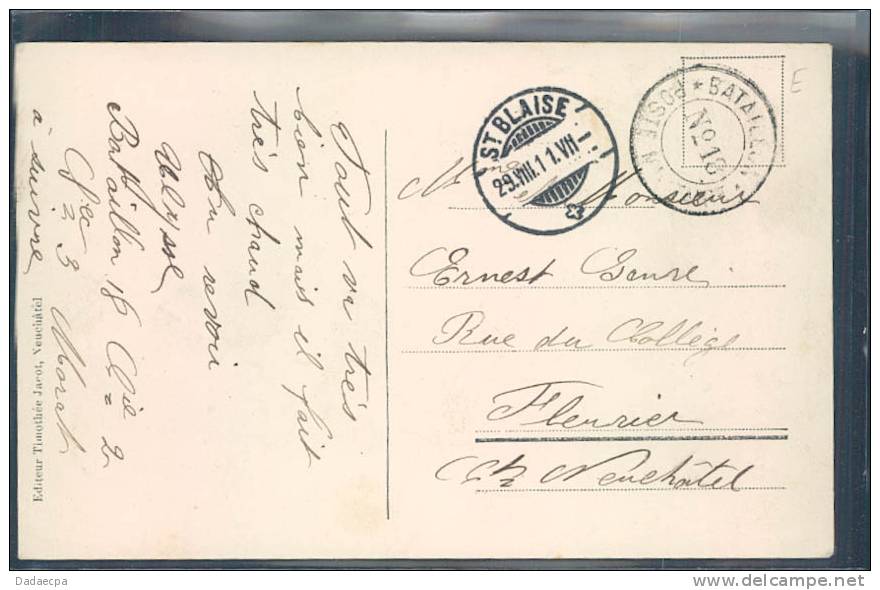 Tout va très
bien mais il fait
très chaud
Au revoir
Ulysse
Bataillon 18 Cie 2
Sec 3 Morat
à suivre
Editeur Timothée Jacot, Neuchâtel
ST BLAISE
29.VIII.11.VII
POSTE BATAILLON
No 18
E
M Monsieur
Ernest
Rue du Collège
Fleurier
Neuchâtel
Dadaecpa
www.delcampe.net